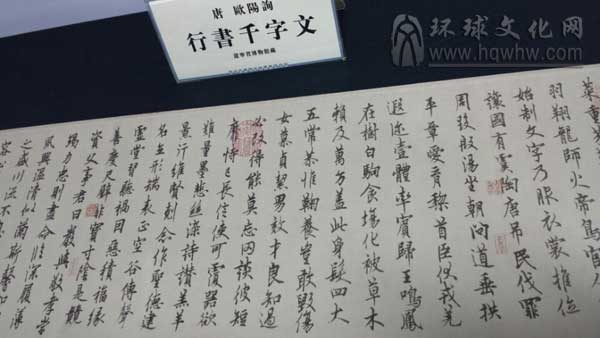 唐 歐陽詢
行書千字文
遼寧省博物館藏
环球文化网
www.hqwhw.com
菜重
羽翔龍師火帝鳥官人
始制文字乃服衣裳推位
讓國有虞陶唐吊民伐罪
周發殷湯坐朝問道垂拱
平章愛育黎首臣伏戎羌
遐迩壹體率賓歸王鳴鳳
在樹白駒食場化被草木
賴及萬方蓋此身髮四大
五常恭惟鞠養豈敢毀傷
女慕貞絜男效才良知過
必改得能莫忘罔談彼短
靡恃己長信使可覆器欲
難量墨悲絲染詩讚羔羊
景行維賢剋念作聖德建
名立形端表正空谷傳聲
虛堂習聽禍因惡積福緣
善慶尺璧非寶寸陰是競
資父事君曰嚴與敬孝當
竭力忠則盡命臨深履薄
夙興溫清似蘭斯馨如
之盛川流不